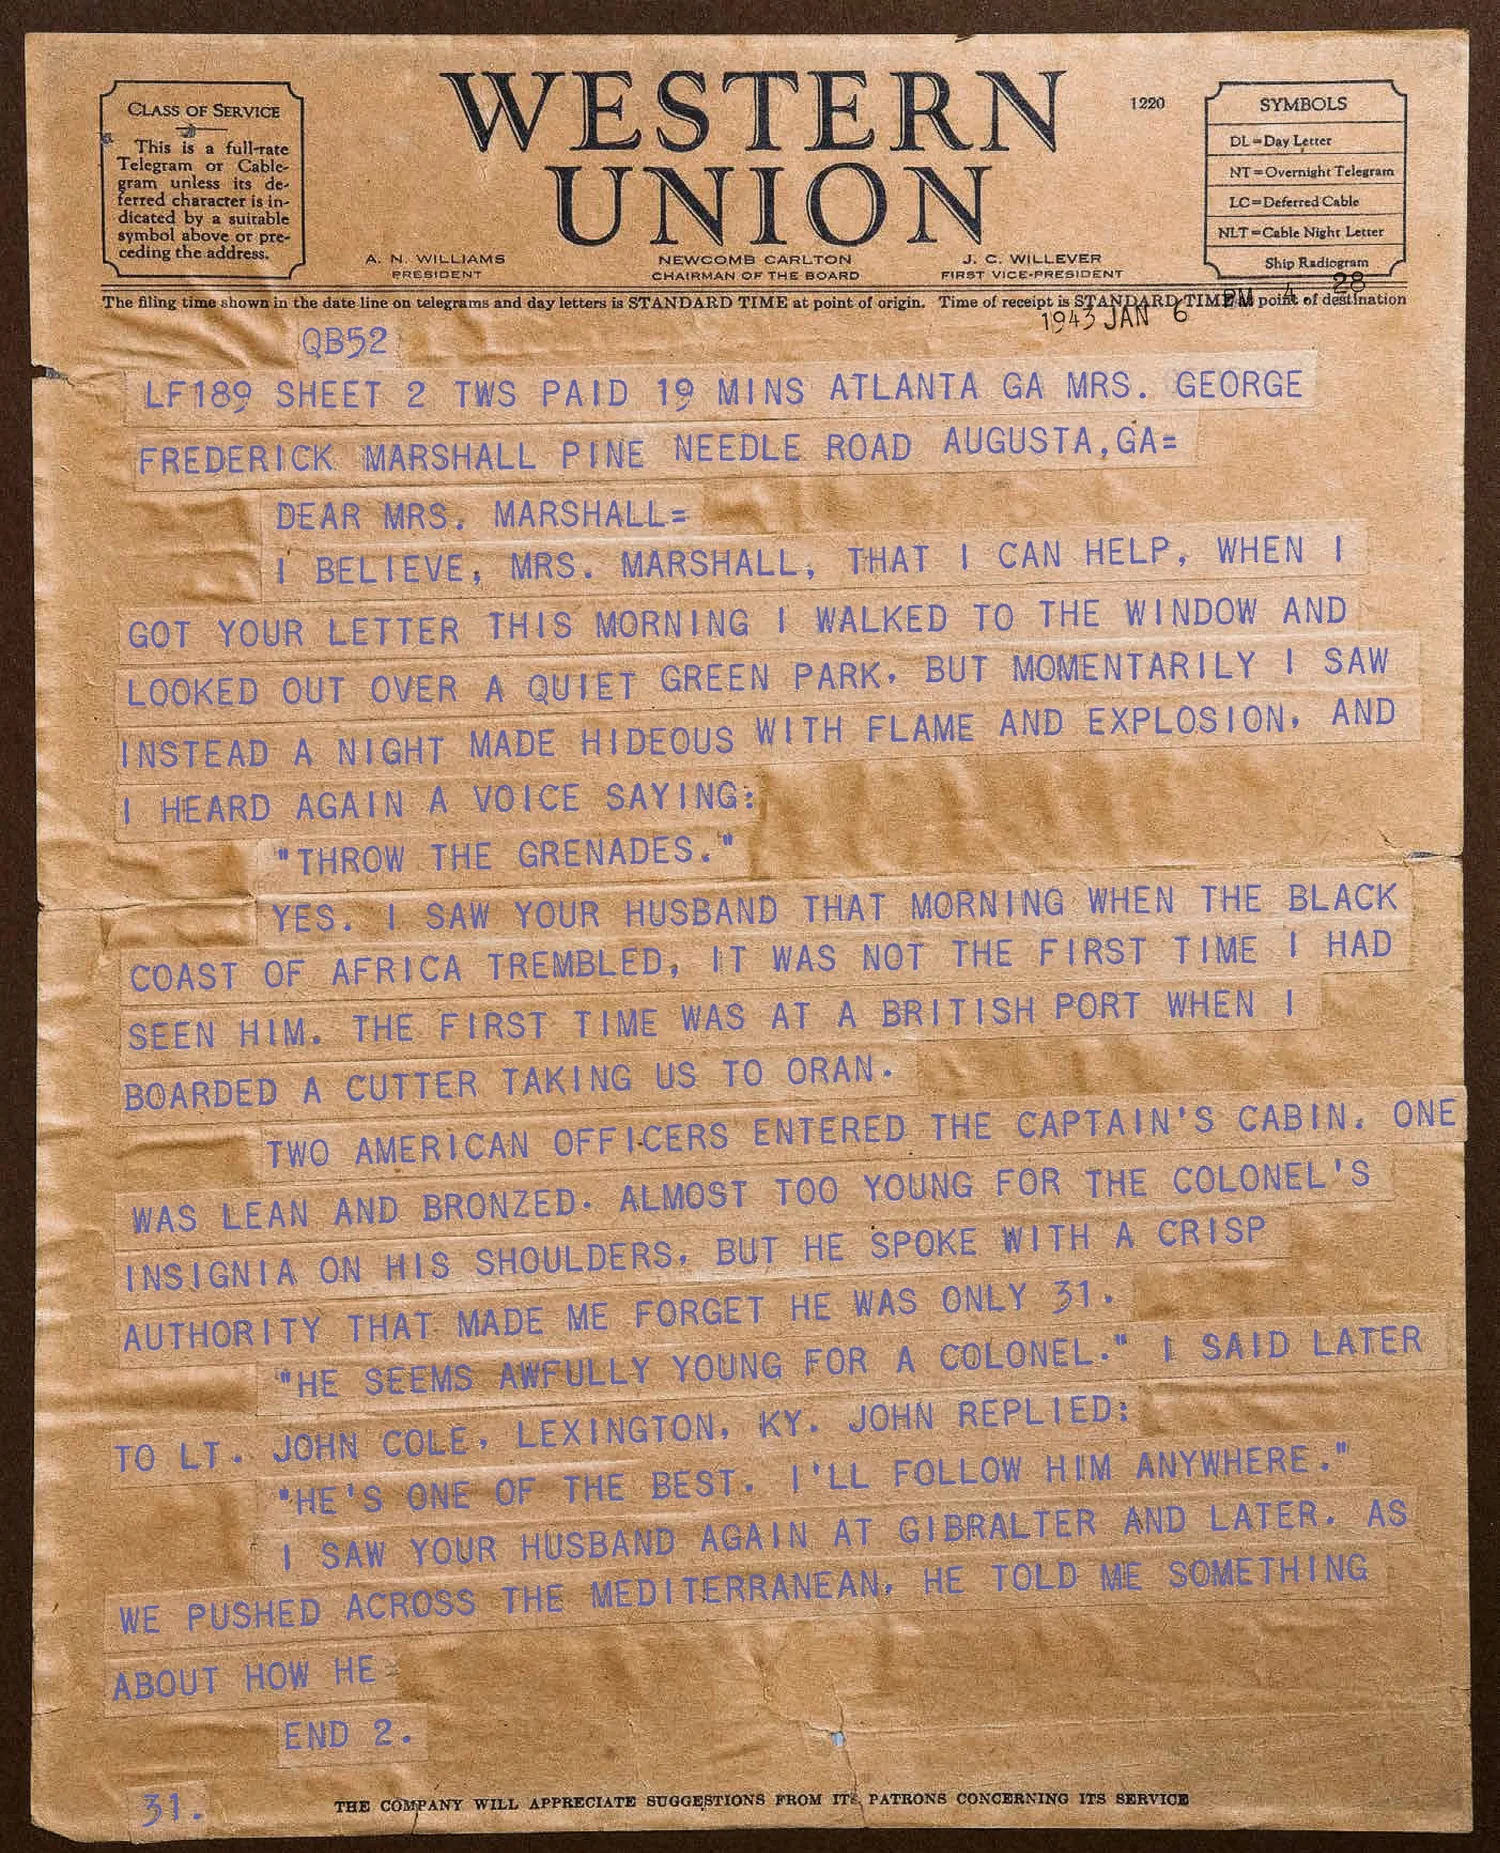 CLASS OF SERVICE
This is a full-rate
Telegram or Cable-
gram unless its de-
ferred character is in-
dicated by a suitable
symbol above or pre-
ceding the address.
WESTERN
UNION
1220
SYMBOLS
DL=Day Letter
NT=Overnight Telegram
LC=Deferred Cable
NLT=Cable Night Letter
Ship Radiogram
A. N. WILLIAMS
PRESIDENT
NEWCOMB CARLTON
CHAIRMAN OF THE BOARD
J. C. WILLEVER
FIRST VICE-PRESIDENT
The filing time shown in the date line on telegrams and day letters is STANDARD TIME at point of origin. Time of receipt is STANDARD TIME at point of destination
1943 JAN 6 PM 4 28
QB52
LF189 SHEET 2 TWS PAID 19 MINS ATLANTA GA MRS. GEORGE
FREDERICK MARSHALL PINE NEEDLE ROAD AUGUSTA,GA=
DEAR MRS. MARSHALL=
I BELIEVE, MRS. MARSHALL, THAT I CAN HELP, WHEN I
GOT YOUR LETTER THIS MORNING I WALKED TO THE WINDOW AND
LOOKED OUT OVER A QUIET GREEN PARK, BUT MOMENTARILY I SAW
INSTEAD A NIGHT MADE HIDEOUS WITH FLAME AND EXPLOSION, AND
I HEARD AGAIN A VOICE SAYING:
"THROW THE GRENADES."
YES. I SAW YOUR HUSBAND THAT MORNING WHEN THE BLACK
COAST OF AFRICA TREMBLED, IT WAS NOT THE FIRST TIME I HAD
SEEN HIM. THE FIRST TIME WAS AT A BRITISH PORT WHEN I
BOARDED A CUTTER TAKING US TO ORAN.
TWO AMERICAN OFFICERS ENTERED THE CAPTAIN'S CABIN. ONE
WAS LEAN AND BRONZED. ALMOST TOO YOUNG FOR THE COLONEL'S
INSIGNIA ON HIS SHOULDERS, BUT HE SPOKE WITH A CRISP
AUTHORITY THAT MADE ME FORGET HE WAS ONLY 31.
"HE SEEMS AWFULLY YOUNG FOR A COLONEL." I SAID LATER
TO LT. JOHN COLE, LEXINGTON, KY. JOHN REPLIED:
"HE'S ONE OF THE BEST. I'LL FOLLOW HIM ANYWHERE."
I SAW YOUR HUSBAND AGAIN AT GIBRALTER AND LATER. AS
WE PUSHED ACROSS THE MEDITERRANEAN, HE TOLD ME SOMETHING
ABOUT HOW HE=
END 2.
31.
THE COMPANY WILL APPRECIATE SUGGESTIONS FROM ITS PATRONS CONCERNING ITS SERVICE